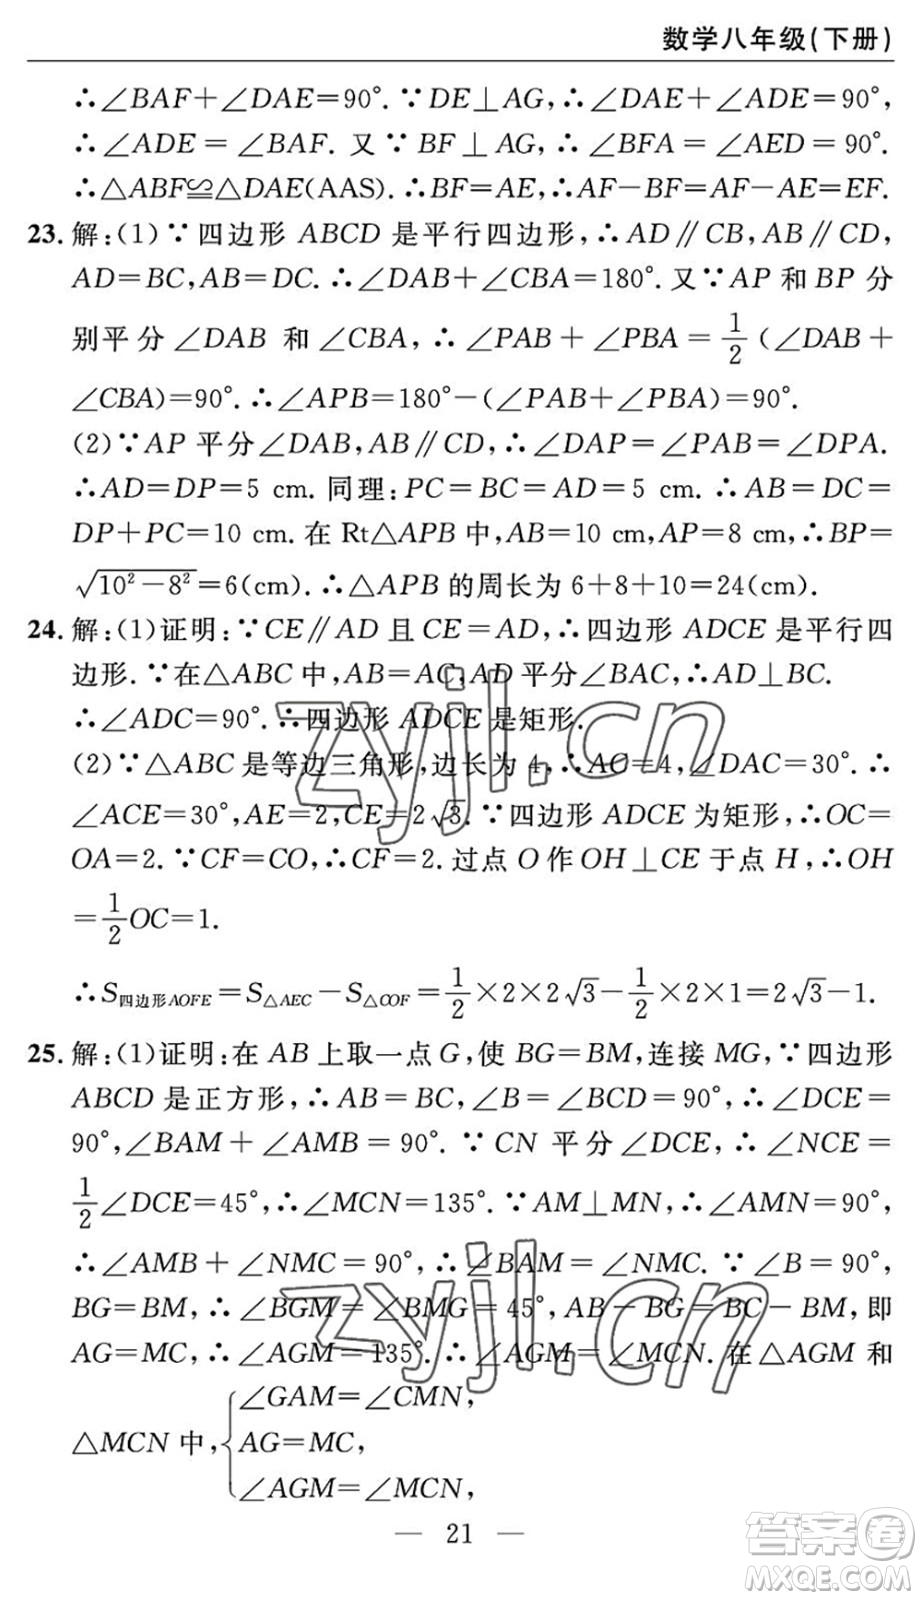 数学八年级(下册)
∴∠BAF+∠DAE=90°.∵DE⊥AG,∴∠DAE+∠ADE=90°,
∴∠ADE=∠BAF.又∵BF⊥AG,∴∠BFA=∠AED=90°.
∴△ABF≌△DAE(AAS).∴BF=AE,∴AF-BF=AF-AE=EF.
23.解:(1)∵四边形 ABCD 是平行四边形,∴AD∥CB,AB∥CD,
AD=BC,AB=DC.∴∠DAB+∠CBA=180°.又∵AP 和 BP 分
别平分∠DAB 和∠CBA,∴∠PAB+∠PBA=1/2(∠DAB+
∠CBA)=90°.∴∠APB=180°-(∠PAB+∠PBA)=90°.
(2)∵AP 平分∠DAB,AB∥CD,∴∠DAP=∠PAB=∠DPA.
∴AD=DP=5 cm.同理:PC=BC=AD=5 cm.∴AB=DC=
DP+PC=10 cm.在 Rt△APB 中,AB=10 cm,AP=8 cm,∴BP=
√(10²-8²)=6(cm).∴△APB 的周长为 6+8+10=24(cm).
24.解:(1)证明:∵CE∥AD 且 CE=AD,∴四边形 ADCE 是平行四
边形.∵在△ABC 中,AB=AC,AD 平分∠BAC,∴AD⊥BC.
∴∠ADC=90°.∴四边形 ADCE 是矩形.
(2)∵△ABC 是等边三角形,边长为 4,∴AC=4,∠DAC=30°.∴
∠ACE=30°,AE=2,CE=2√3.∵四边形 ADCE 为矩形,∴OC=
OA=2.∵CF=CO,∴CF=2.过点 O 作 OH⊥CE 于点 H,∴OH
=1/2OC=1.
∴S四边形AOFE=S△AEC-S△COF=1/2×2×2√3-1/2×2×1=2√3-1.
25.解:(1)证明:在 AB 上取一点 G,使 BG=BM,连接 MG,∵四边形
ABCD 是正方形,∴AB=BC,∠B=∠BCD=90°,∴∠DCE=
90°,∠BAM+∠AMB=90°.∵CN 平分∠DCE,∴∠NCE=
1/2∠DCE=45°,∴∠MCN=135°.∵AM⊥MN,∴∠AMN=90°,
∴∠AMB+∠NMC=90°,∴∠BAM=∠NMC.∵∠B=90°,
BG=BM,∴∠BGM=∠BMG=45°,AB-BG=BC-BM,即
AG=MC,∴∠AGM=135°.∴∠AGM=∠MCN.在△AGM 和
△MCN 中,{∠GAM=∠CMN,
AG=MC,
∠AGM=∠MCN,
— 21 —
zyjl.cn
zyjl.cn
答案圈
MXQE.COM